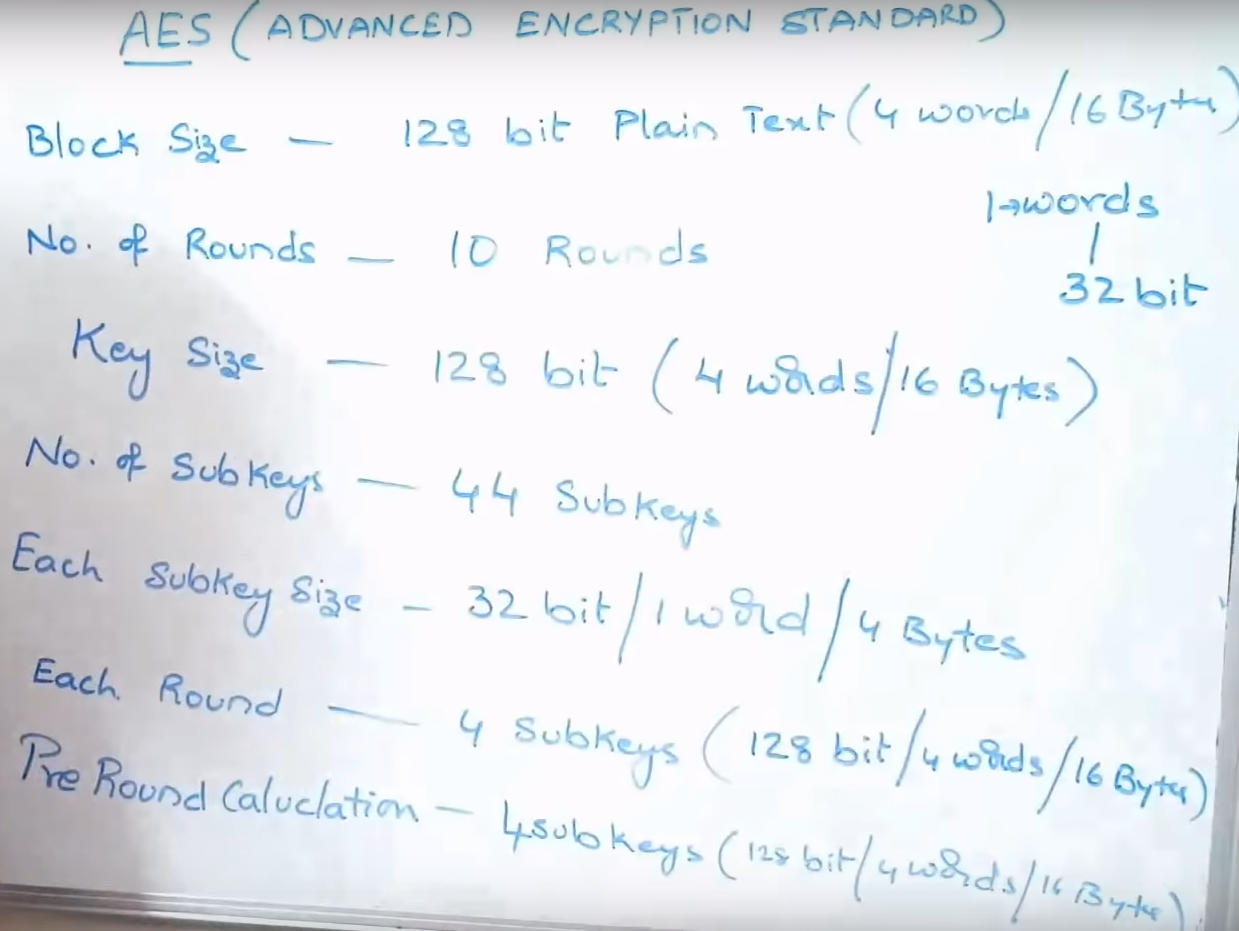 AES (ADVANCED ENCRYPTION STANDARD)
Block Size — 128 bit Plain Text (4 words/16 Bytes)
1→words
No. of Rounds — 10 Rounds
32 bit
Key Size — 128 bit (4 words/16 Bytes)
No. of Subkeys — 44 Subkeys
Each Subkey Size — 32 bit/1 word/4 Bytes
Each Round — 4 Subkeys (128 bit/4 words/16 Bytes)
Pre Round Caluclation — 4 subkeys (128 bit/4 words/16 Bytes)